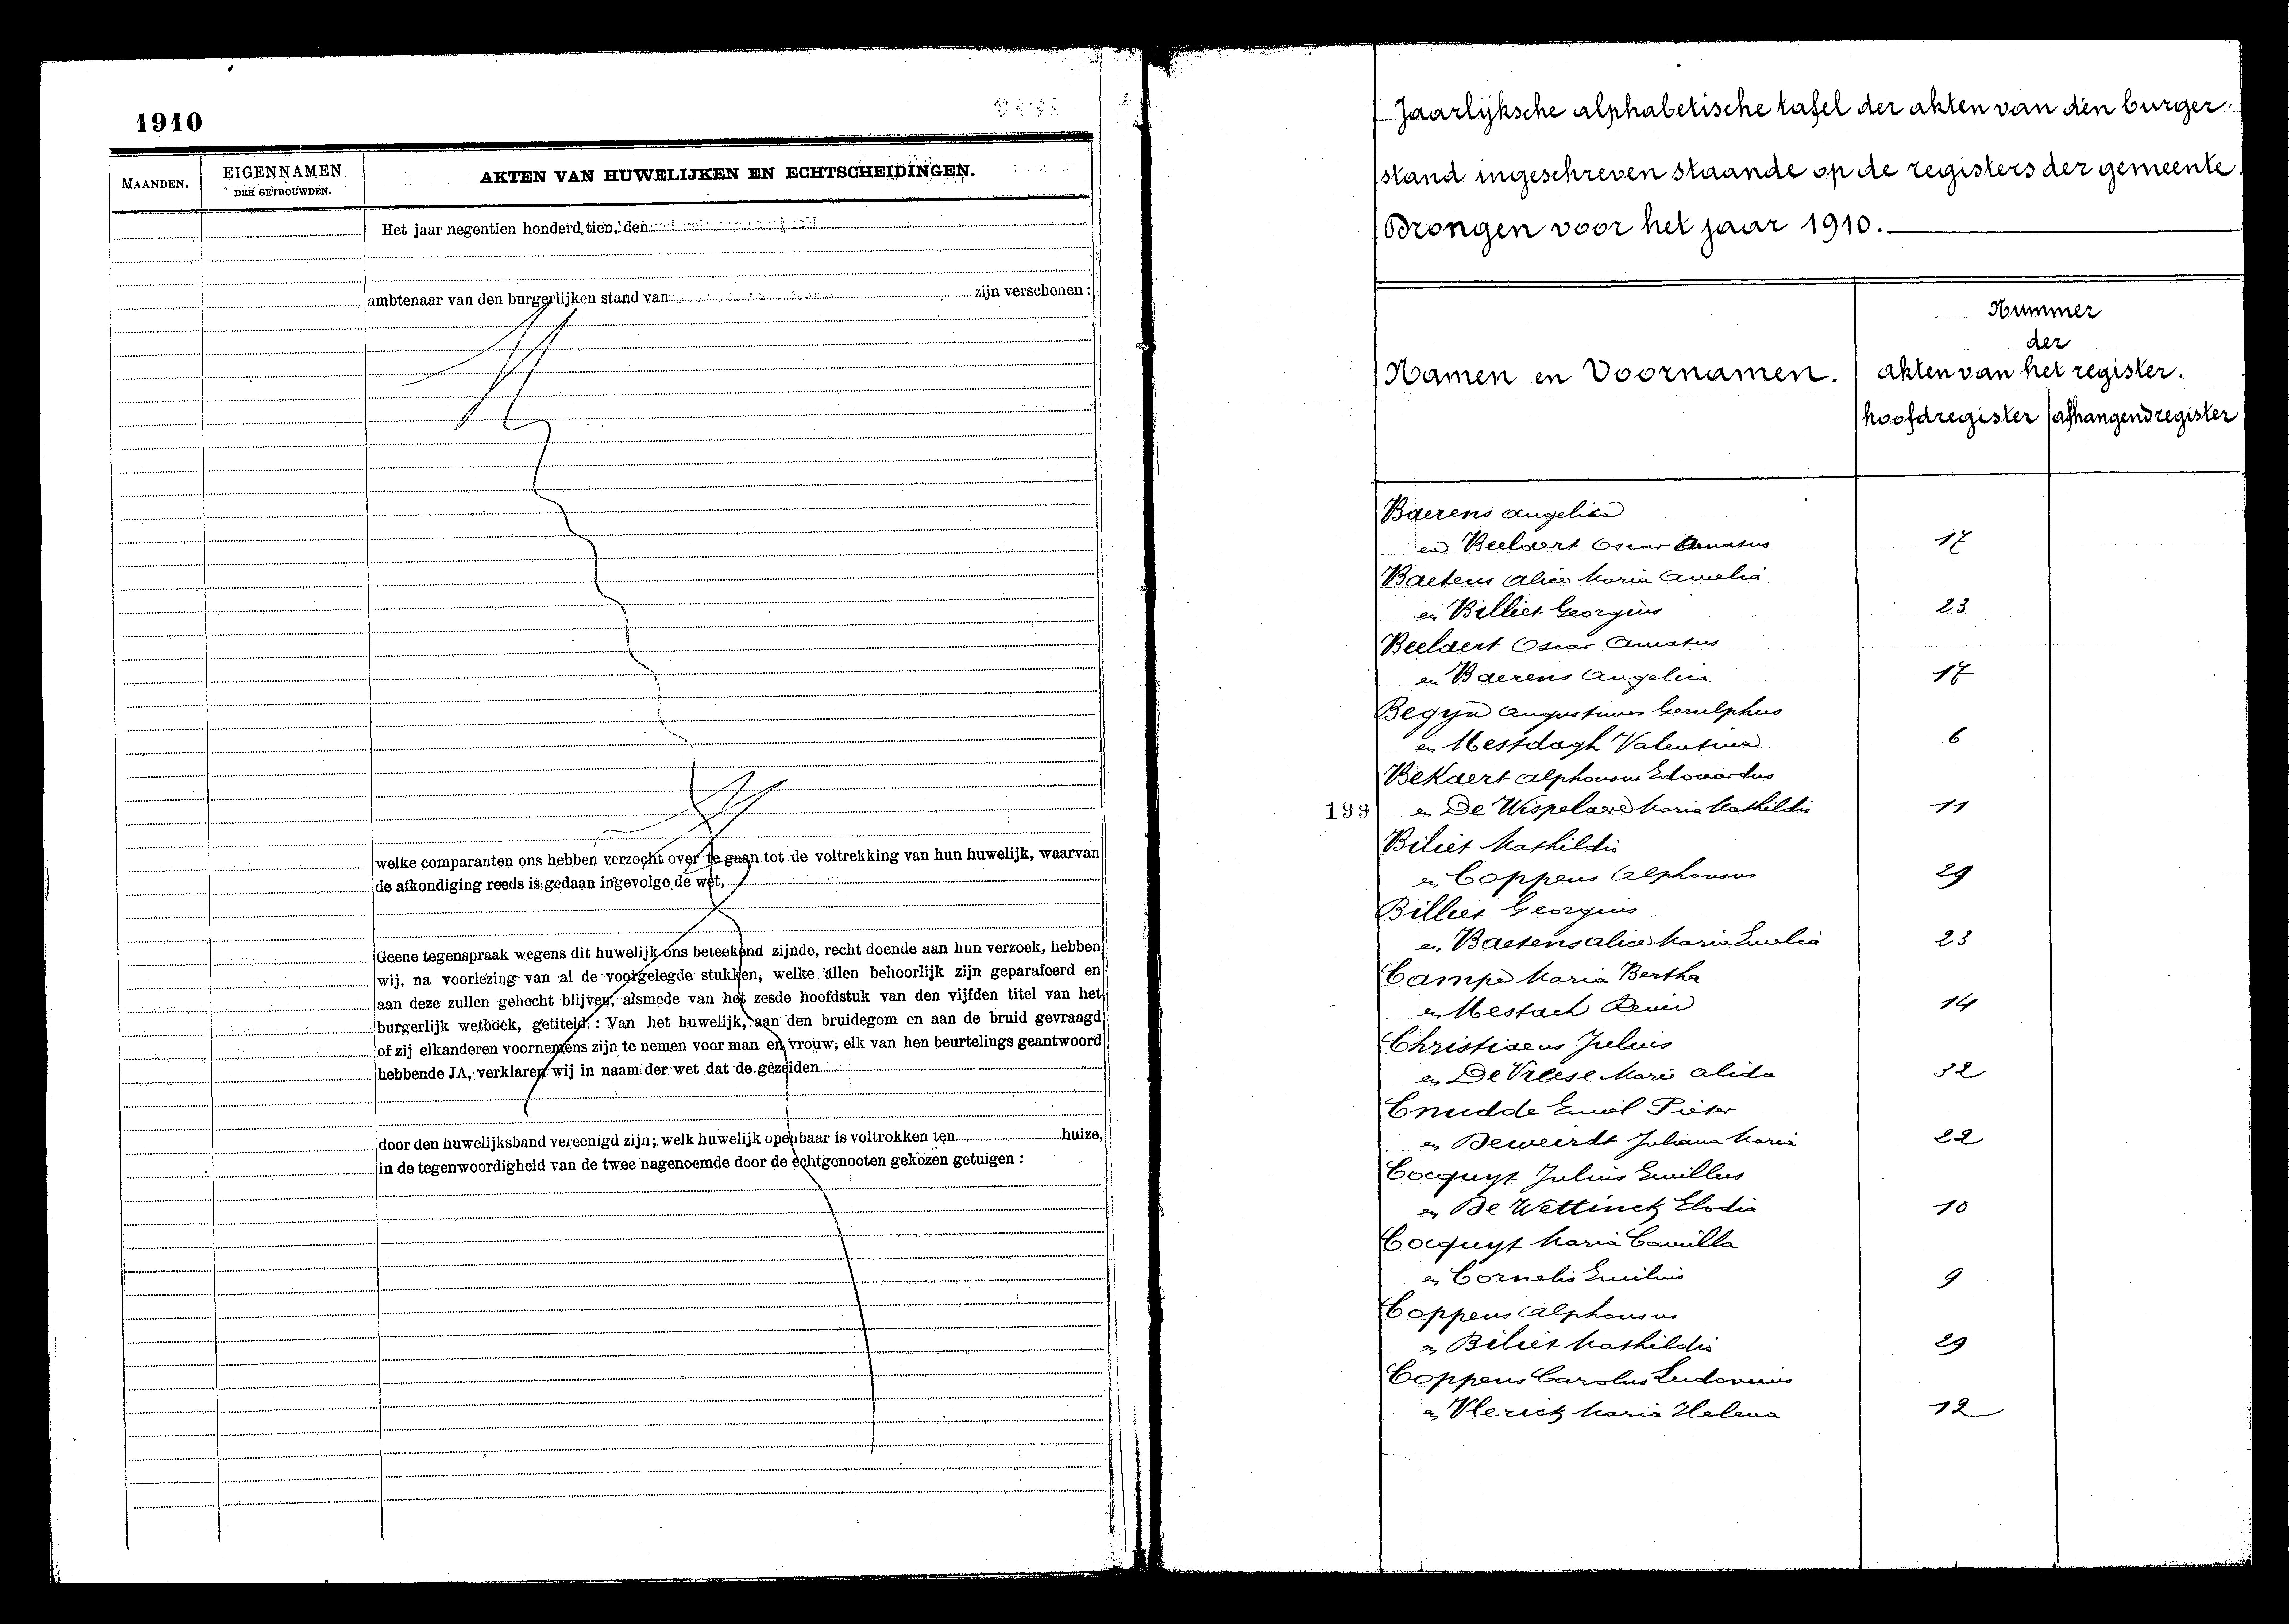 1910
MAANDEN.
EIGENNAMEN
DER GETROUWDEN.
AKTEN VAN HUWELIJKEN EN ECHTSCHEIDINGEN.
Het jaar negentien honderd tien, den
ambtenaar van den burgerlijken stand van zijn verschenen :
welke comparanten ons hebben verzocht over te gaan tot de voltrekking van hun huwelijk, waarvan
de afkondiging reeds is gedaan ingevolge de wet,
Geene tegenspraak wegens dit huwelijk ons beteekend zijnde, recht doende aan hun verzoek, hebben
wij, na voorlezing van al de voorgelegde stukken, welke allen behoorlijk zijn geparafeerd en
aan deze zullen gehecht blijven, alsmede van het zesde hoofdstuk van den vijfden titel van het
burgerlijk wetboek, getiteld : Van het huwelijk, aan den bruidegom en aan de bruid gevraagd
of zij elkanderen voornemens zijn te nemen voor man en vrouw; elk van hen beurtelings geantwoord
hebbende JA, verklaren wij in naam der wet dat de gezeiden
door den huwelijksband vereenigd zijn; welk huwelijk openbaar is voltrokken ten huize,
in de tegenwoordigheid van de twee nagenoemde door de echtgenooten gekozen getuigen :
Jaarlijksche alphabetische tafel der akten van den burger-
stand ingeschreven staande op de registers der gemeente
Drongen voor het jaar 1910.
Namen en Voornamen.
Nummer
der
akten van het register.
hoofdregister
afhangendregister
Baerens Angelica
en Beelaert Oscar Amatus 17
Baetens Alice Maria Amelia
en Billiet Georgius 23
Beelaert Oscar Amatus
en Baerens Angelica 17
Begyn Augustinus Gerulphus
en Mestdagh Valentina 6
Bekaert Alphonsus Edouardus
199
en De Wispelaere Maria Mathildis 11
Biliet Mathildis
en Coppens Alphonsus 29
Billiet Georgius
en Baetens Alice Maria Emelia 23
Campe Maria Bertha
en Mestach René 14
Christiaens Julius
en De Vreese Marie Alida 32
Cnudde Emiel Pieter
en Deweirdt Juliana Maria 22
Cocquyt Julius Emillus
en De Wettinck Elodia 10
Cocquyt Maria Camilla
en Cornelis Emilius 9
Coppens Alphonsus
en Biliet Mathildis 29
Coppens Carolus Ludovicus
en Vlerick Maria Helena 12